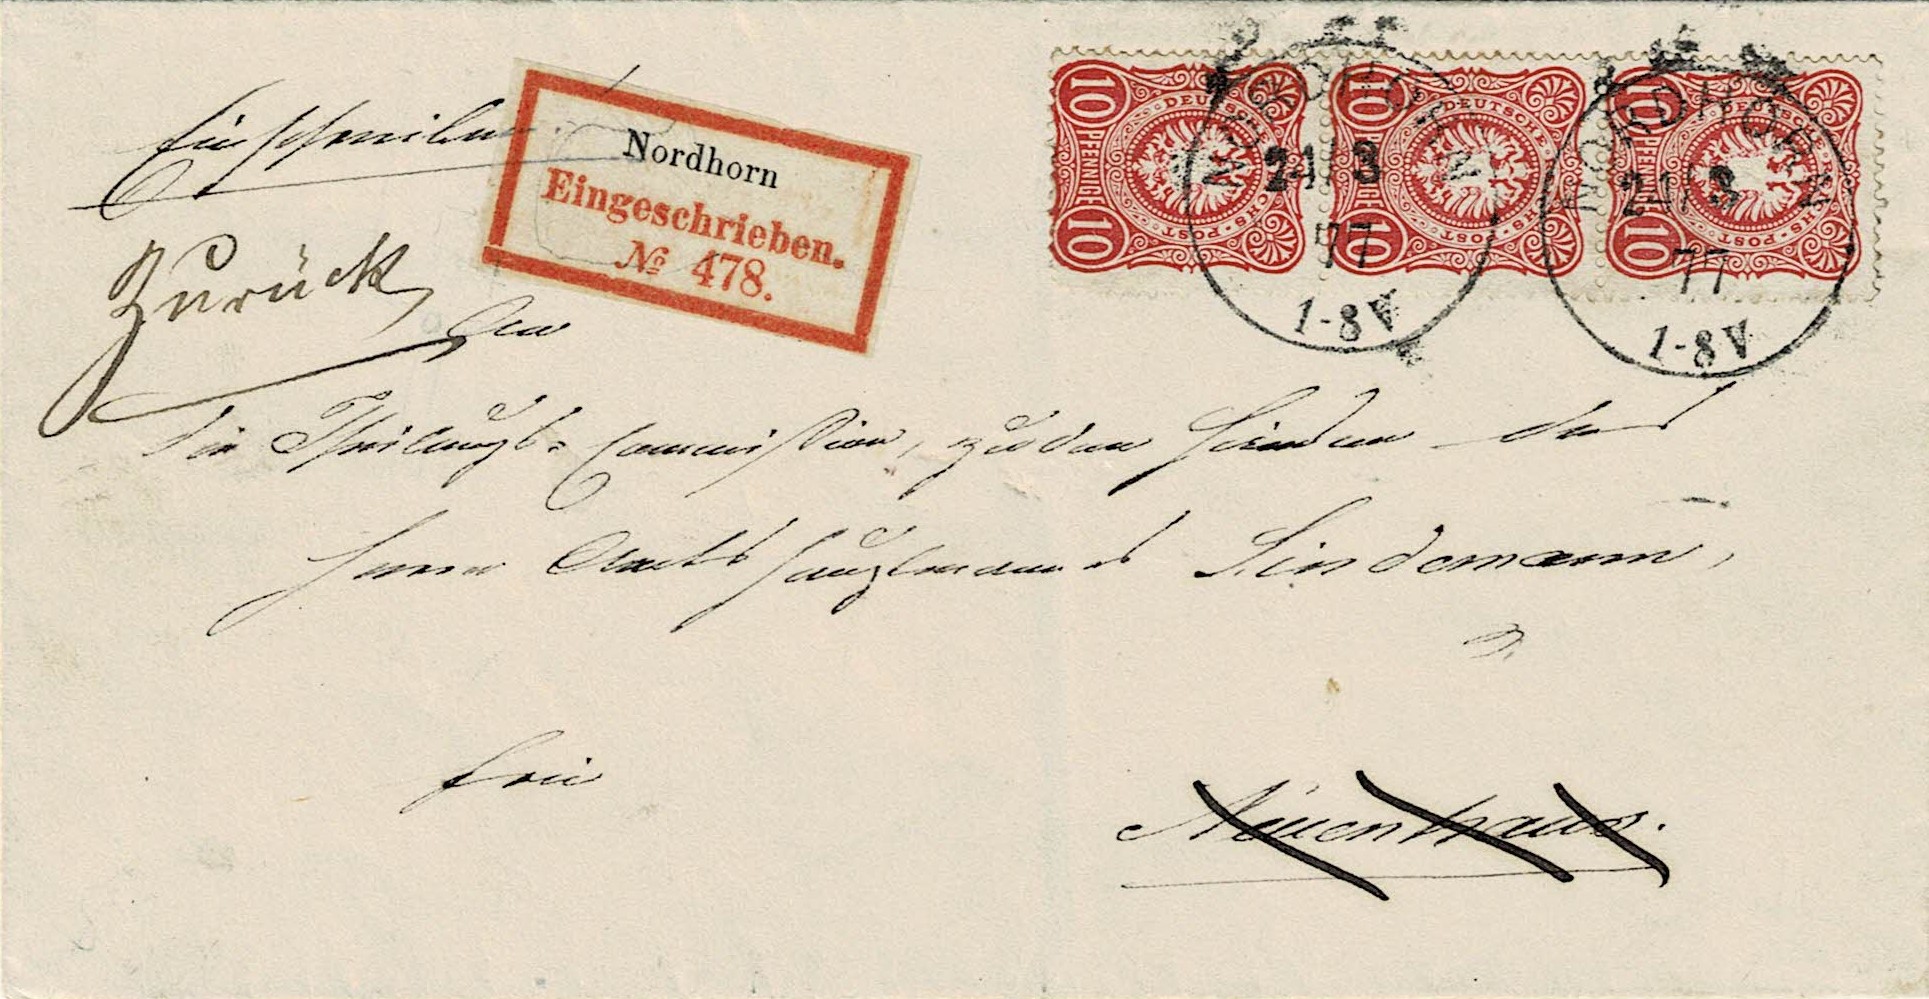 Einschreiben.
Nordhorn
Eingeschrieben.
№ 478.
Zurück
An
die Theilungs-Commission, zu den Händen des
Herrn Amtshauptmanns Lindemann,
frei
Neuenhaus.
10 PFENNIGE 10
DEUTSCHE REICHS-POST
10 PFENNIGE 10
DEUTSCHE REICHS-POST
10 PFENNIGE 10
DEUTSCHE REICHS-POST
NORDHORN
21 3
77
1-8V
NORDHORN
21 3
77
1-8V